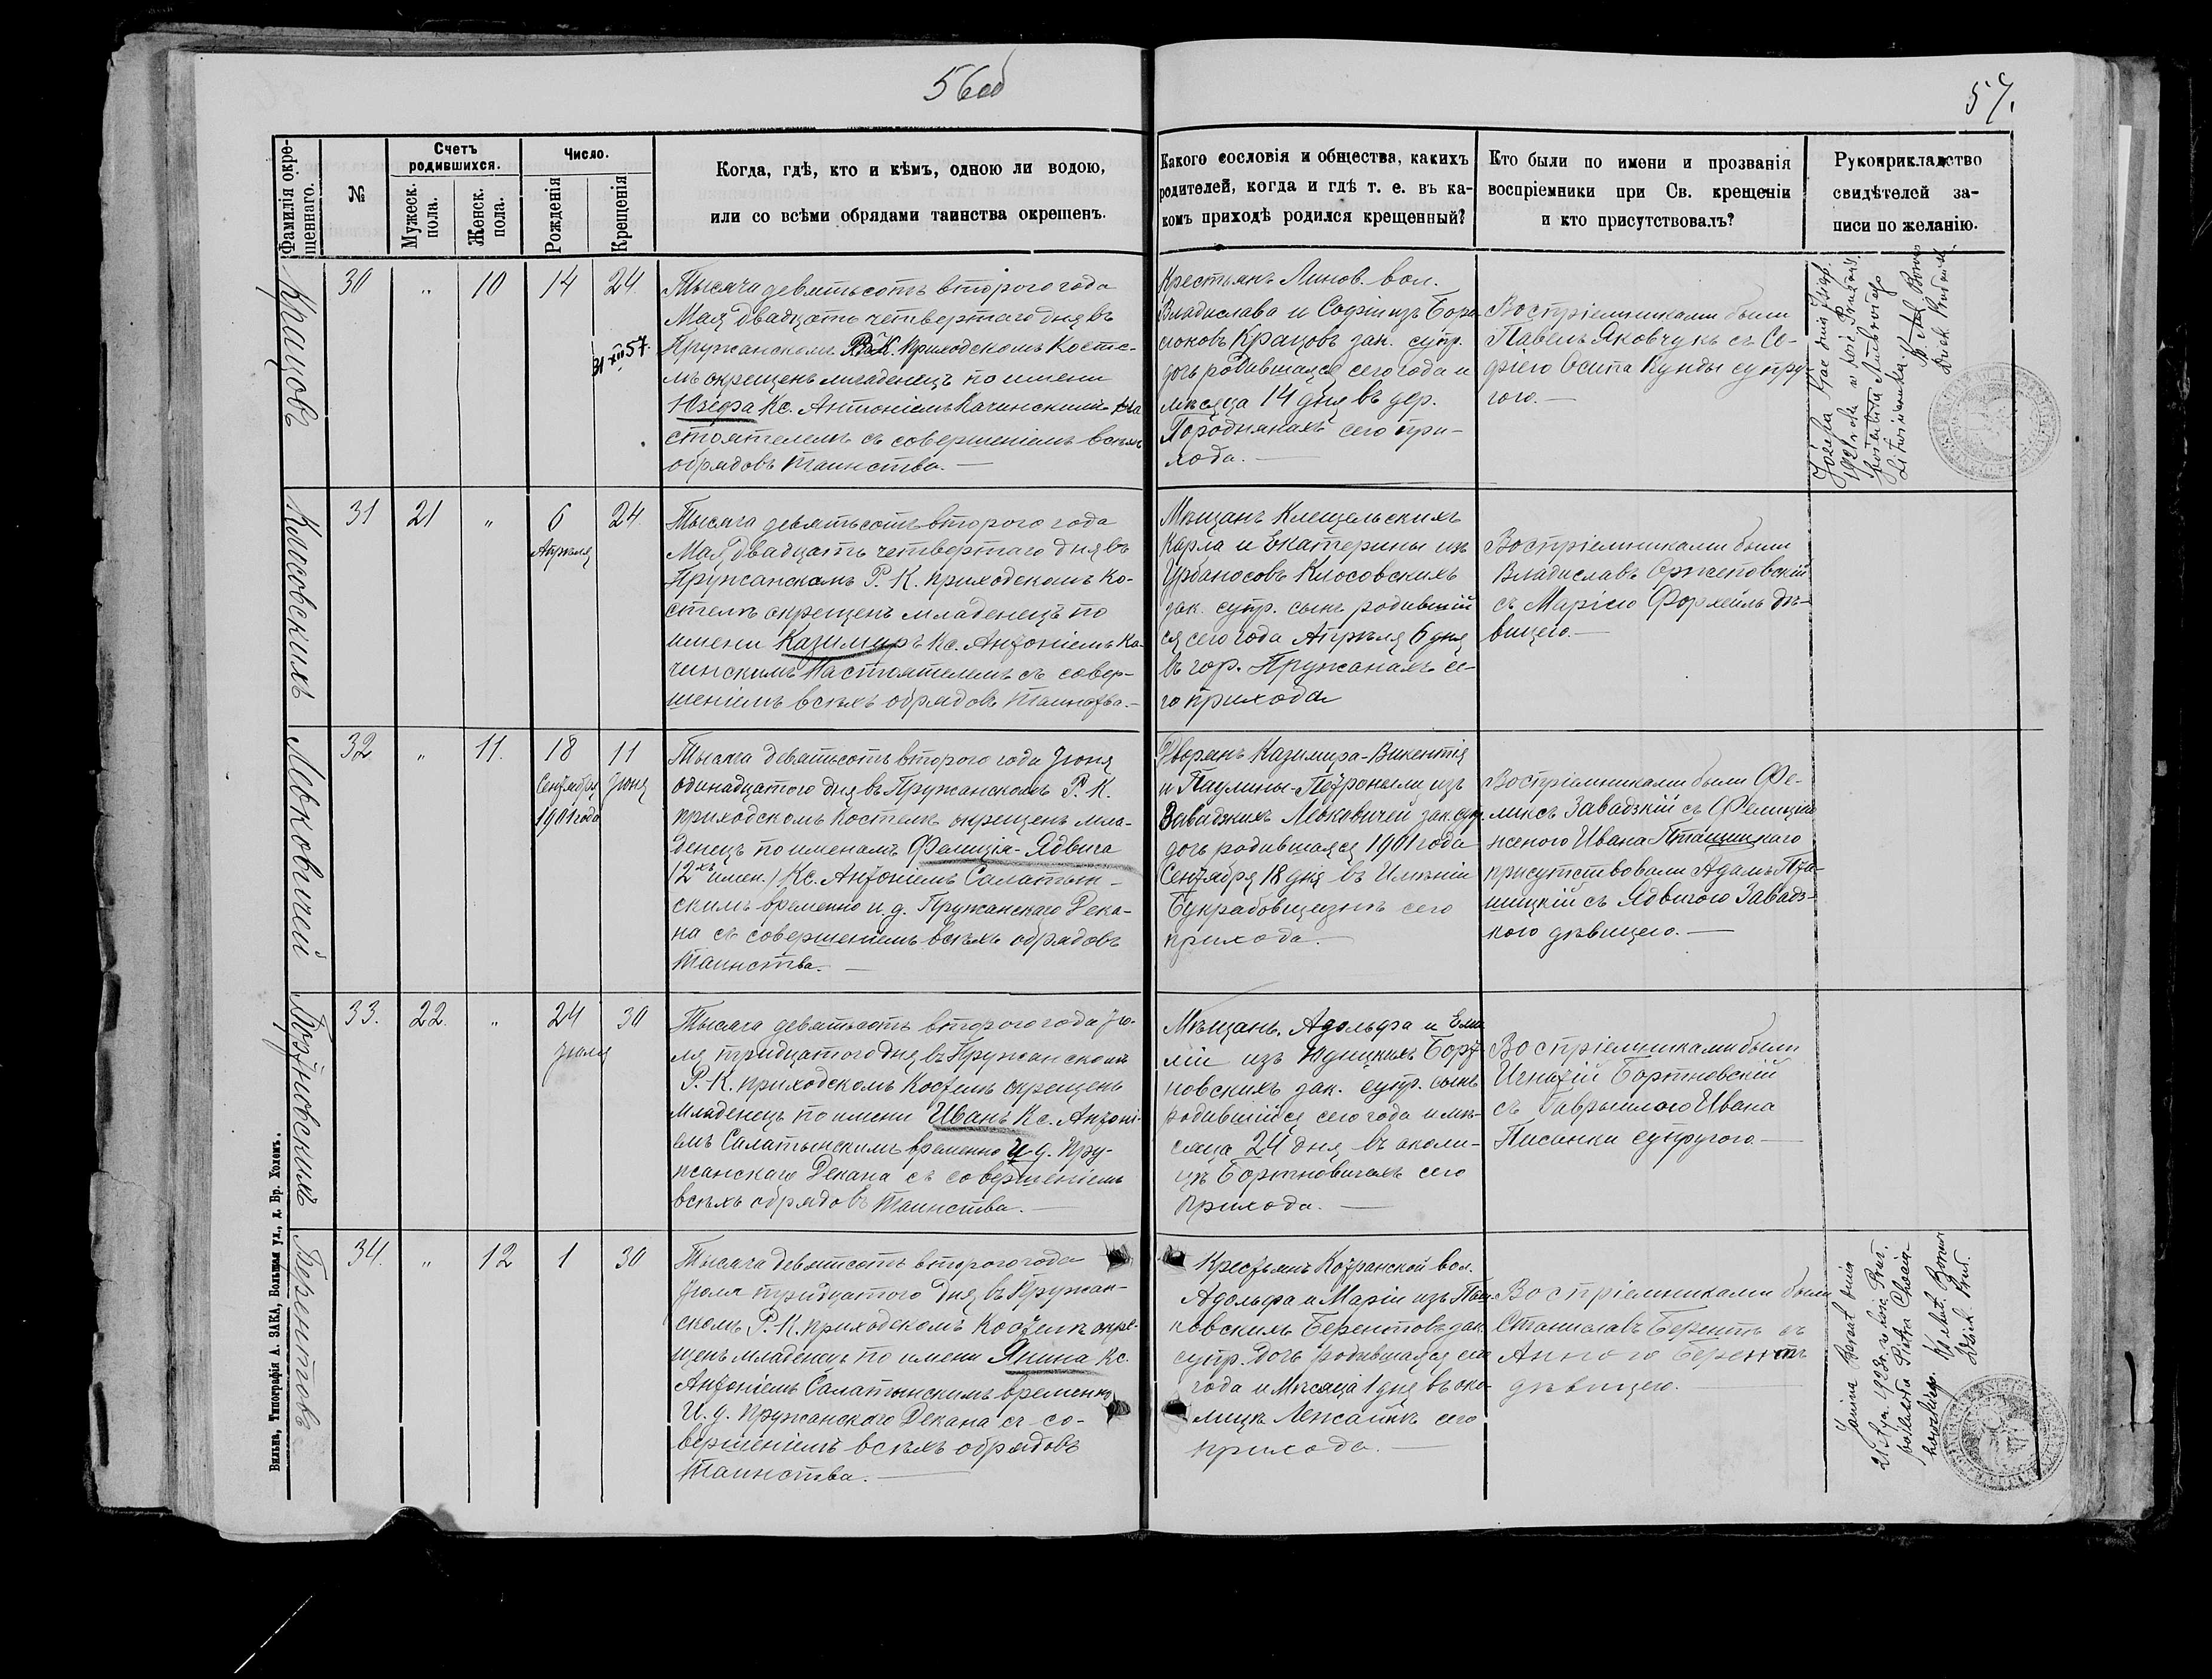 56об
57.
Фамилія окре-
щеннаго.
№
Счетъ
родившихся.
Мужеск.
пола.
Женск.
пола.
Число.
Рожденія
Крещенія
Когда, гдѣ, кто и кѣмъ, одною ли водою,
или со всѣми обрядами таинства окрещенъ.
Какого сословія и общества, какихъ
родителей, когда и гдѣ т. е. въ ка-
комъ приходѣ родился крещенный?
Кто были по имени и прозванія
воспріемники при Св. крещеніи
и кто присутствовалъ?
Рукоприкладство
свидѣтелей за-
писи по желанію.
Крацовъ
30
"
10
14
24
31 XII 57.
Тысяча девятьсотъ второго года
Мая двадцать четвертаго дня въ
Пружанскомъ Р. К. приходскомъ косте-
лѣ окрещенъ младенецъ по имени
Юзефа Кс. Антоніемъ Качинскимъ На
стоятелемъ съ совершеніемъ всѣхъ
обрядовъ таинства. —
Крестьянъ Линов. вол.
Владислава и Софіи изъ
Крацовъ зак. супр.
дочь родившаяся сего года и
мѣсяца 14 дня въ дер.
Городнянахъ сего при-
хода. —
Воспріемниками были
Павелъ Яковчукъ съ Со-
фіею Осипа Кунды супру
гою. —
Клосовскихъ
31
21
"
6
Апрѣля
24
Тысяча девятьсотъ второго года
Мая двадцать четвертаго дня въ
Пружанскомъ Р. К. приходскомъ ко-
стелѣ окрещенъ младенецъ по
имени Казимиръ Кс. Антоніемъ Ка-
чинскимъ Настоятелемъ съ совер-
шеніемъ всѣхъ обрядовъ таинства. —
Мѣщанъ Клещельскихъ
Карла и Екатерины изъ
Урбаносовъ Клосовскихъ
зак. супр. сынъ родившій
ся сего года Апрѣля 6 дня
въ гор. Пружанахъ се-
го прихода
Воспріемниками были
Владиславъ Орженовскій
съ Маріею Форхейль дѣ-
вицею. —
Левковичей
32
"
11.
18
Сентября
1901 года
11
Іюня
Тысяча девятьсотъ второго года Іюня
одинадцатого дня въ Пружанскомъ Р. К.
приходскомъ костелѣ окрещенъ мла-
денецъ по именамъ Фелиція-Ядвига
(2хъ имен.) Кс. Антоніемъ Салатын-
скимъ временно и. д. Пружанскаго Дека-
на съ совершеніемъ всѣхъ обрядовъ
таинства. —
Дворянъ Казимира-Викентія
и Паулины-Петронели изъ
Завадзкихъ Левковичей зак. супр.
дочь родившаяся 1901 года
Сентября 18 дня въ Имѣніи
сего
прихода. —
Воспріемниками были Фе-
ликсъ Завадзкій съ Фелиціею
женою Ивана Пташицкаго
присутствовали Адамъ Пта-
шицкій съ Ядвигою Завадз-
кою дѣвицею. —
Бортновскихъ
33.
22.
"
24
Іюля
30
Тысяча девятьсотъ второго года Ію-
ля тридцатого дня въ Пружанскомъ
Р. К. приходскомъ Костелѣ окрещенъ
младенецъ по имени Иванъ Кс. Антоні-
емъ Салатынскимъ временно И. д. Пру-
жанскаго Декана съ совершеніемъ
всѣхъ обрядовъ таинства. —
Мѣщанъ Адольфа и Еми
ліи изъ Юдицкихъ Борт-
новскихъ зак. супр. сынъ
родившійся сего года и мѣ-
сяца 24 дня въ околи-
цѣ Бортновичахъ сего
прихода. —
Воспріемниками были
Игнатій Бортновскій
съ Гаврылюю Ивана
Писанки супругою. —
Берентовъ
34.
"
12
1
30
Тысяча девятьсотъ второго года
Іюля тридцатого дня въ Пружан-
скомъ Р. К. приходскомъ Костелѣ окре-
щенъ младенецъ по имени Янина Кс.
Антоніемъ Салатынскимъ временно
И. д. Пружанскаго Декана съ со-
вершеніемъ всѣхъ обрядовъ
таинства. —
Крестьянъ Котранской вол.
Адольфа и Маріи изъ
Берентовъ зак.
супр. дочь родившаяся сего
года и мѣсяца 1 дня въ око-
лицѣ сего
прихода. —
Воспріемниками были
Станиславъ Берентъ съ
Анною Берентъ
дѣвицею.
Вильна, Типографія А. ЗАКА, Большая ул., д. Бр. Холемъ.